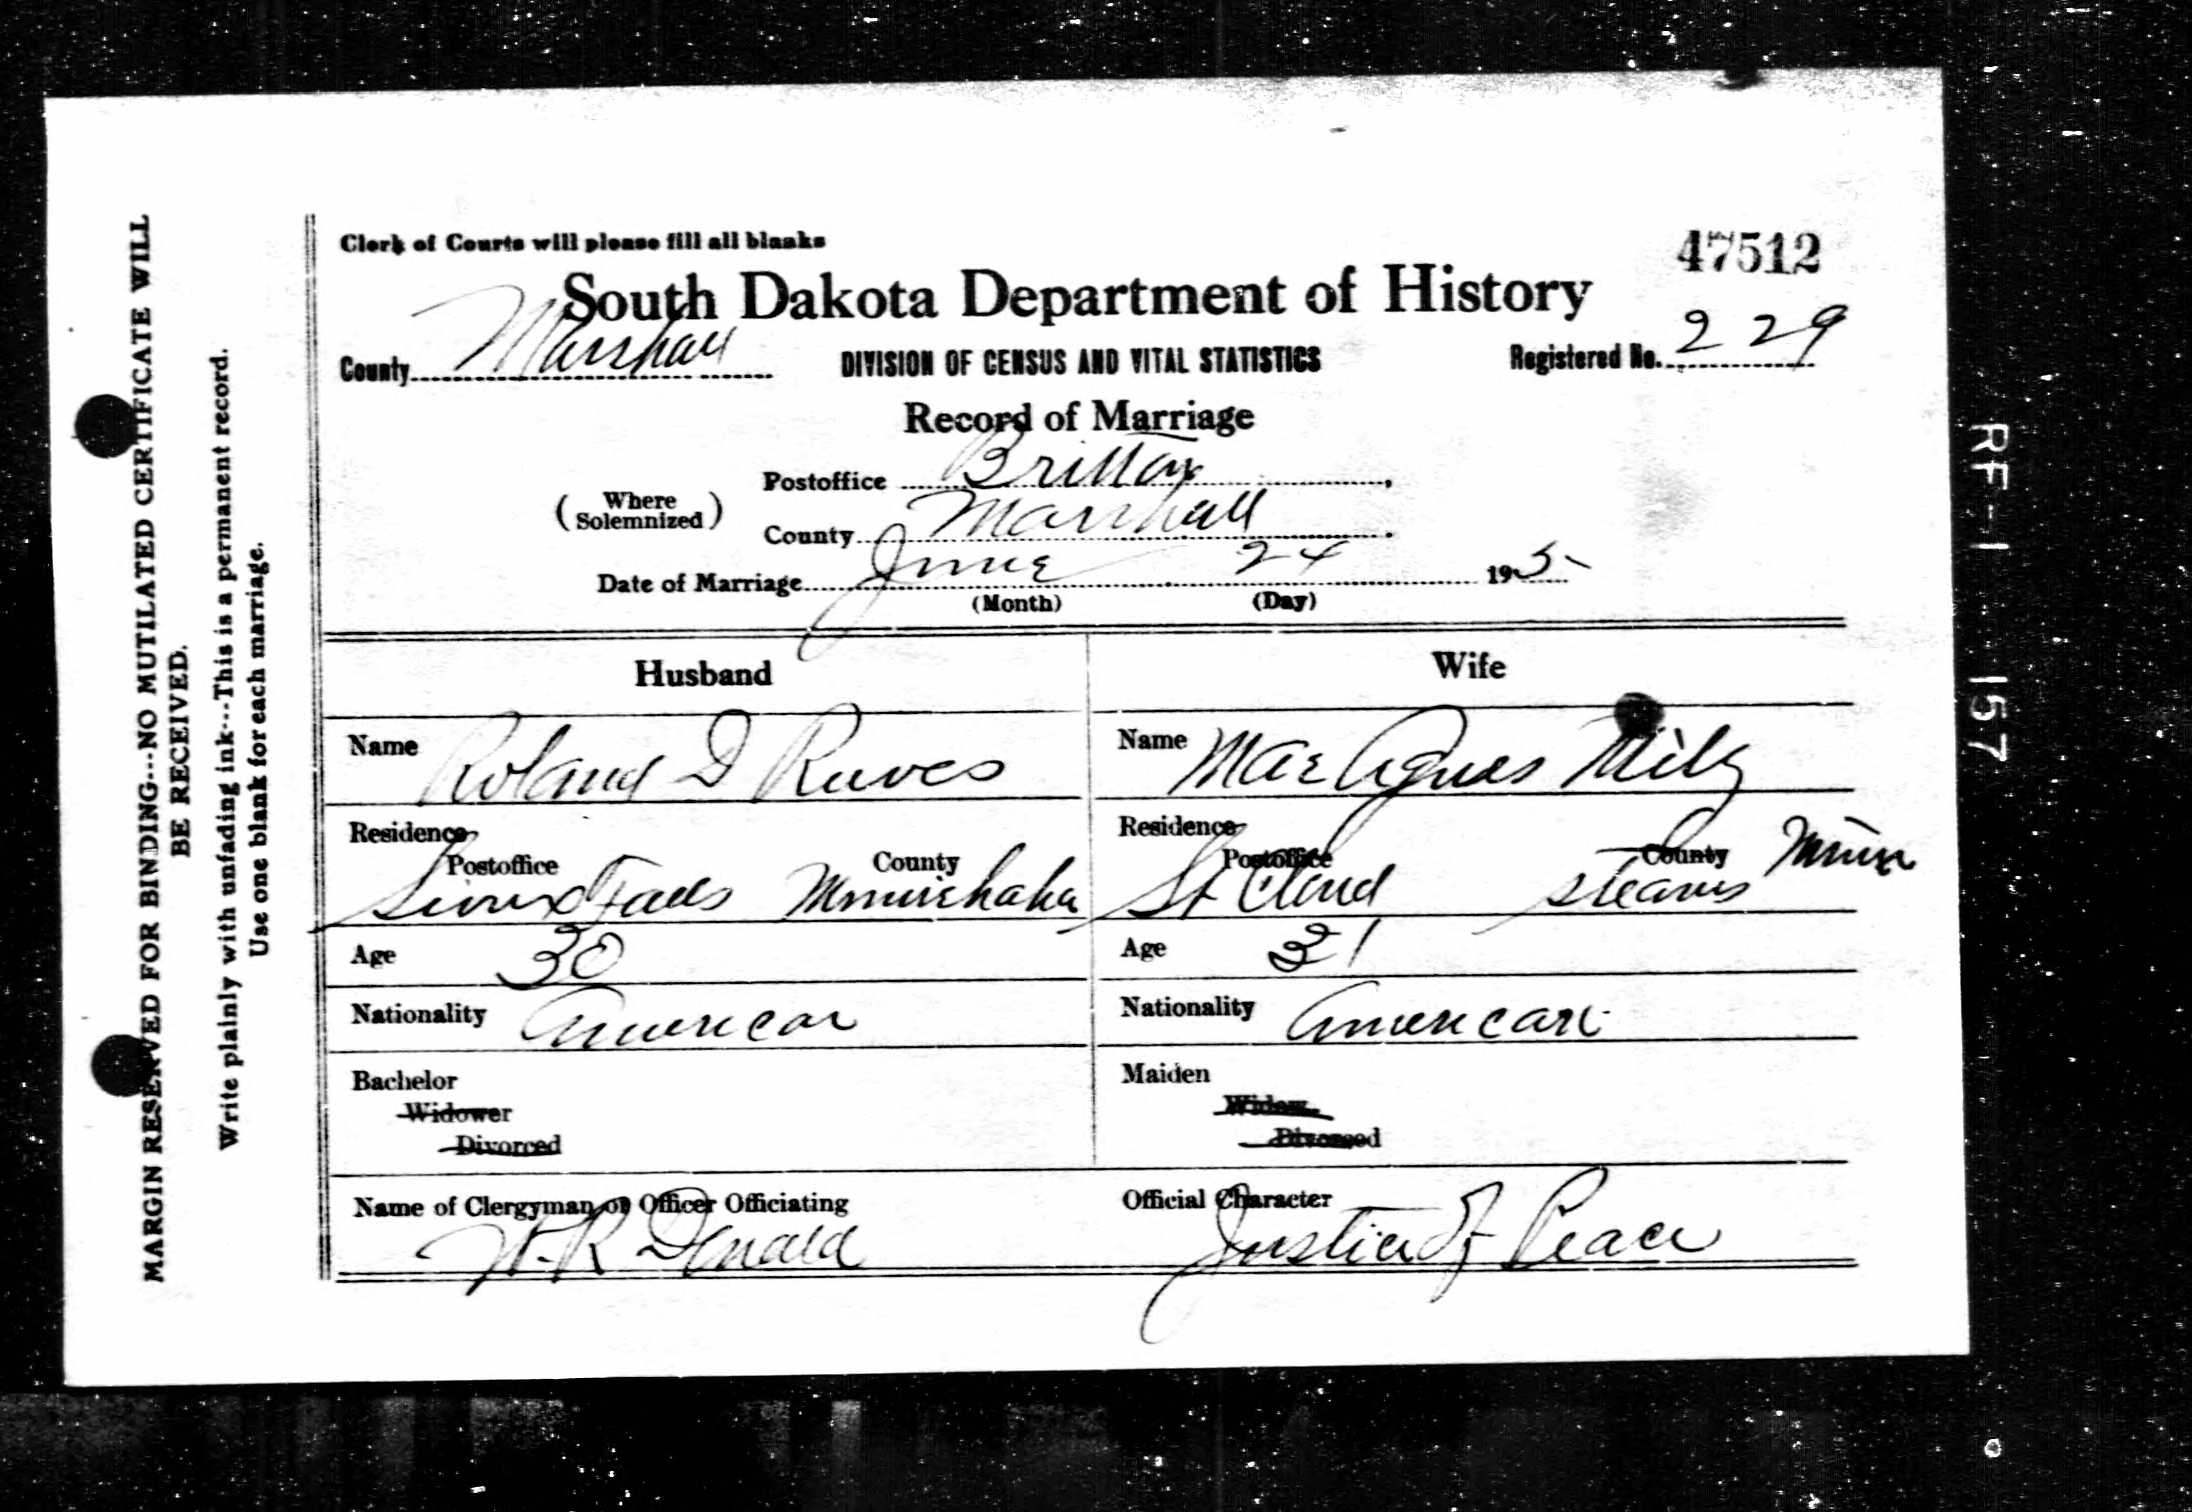 Clerk of Courts will please fill all blanks
47512
South Dakota Department of History
County Marshall DIVISION OF CENSUS AND VITAL STATISTICS Registered No. 229
Record of Marriage
(Where Solemnized) Postoffice Britton
County Marshall
Date of Marriage June 24 193
(Month) (Day)
Husband Wife
Name Roland D Reeves Name Mae Agnes
Residence Residence
Postoffice County Postoffice County Minn
Sioux Falls Minnehaha St Cloud Stearns
Age 30 Age 31
Nationality American Nationality American
Bachelor Maiden
Widower Widow
Divorced Divorced
Name of Clergyman or Officer Officiating Official Character
W. R Donald Justice of Peace
MARGIN RESERVED FOR BINDING---NO MUTILATED CERTIFICATE WILL
BE RECEIVED.
Write plainly with unfading ink---This is a permanent record.
Use one blank for each marriage.
RF-1 157